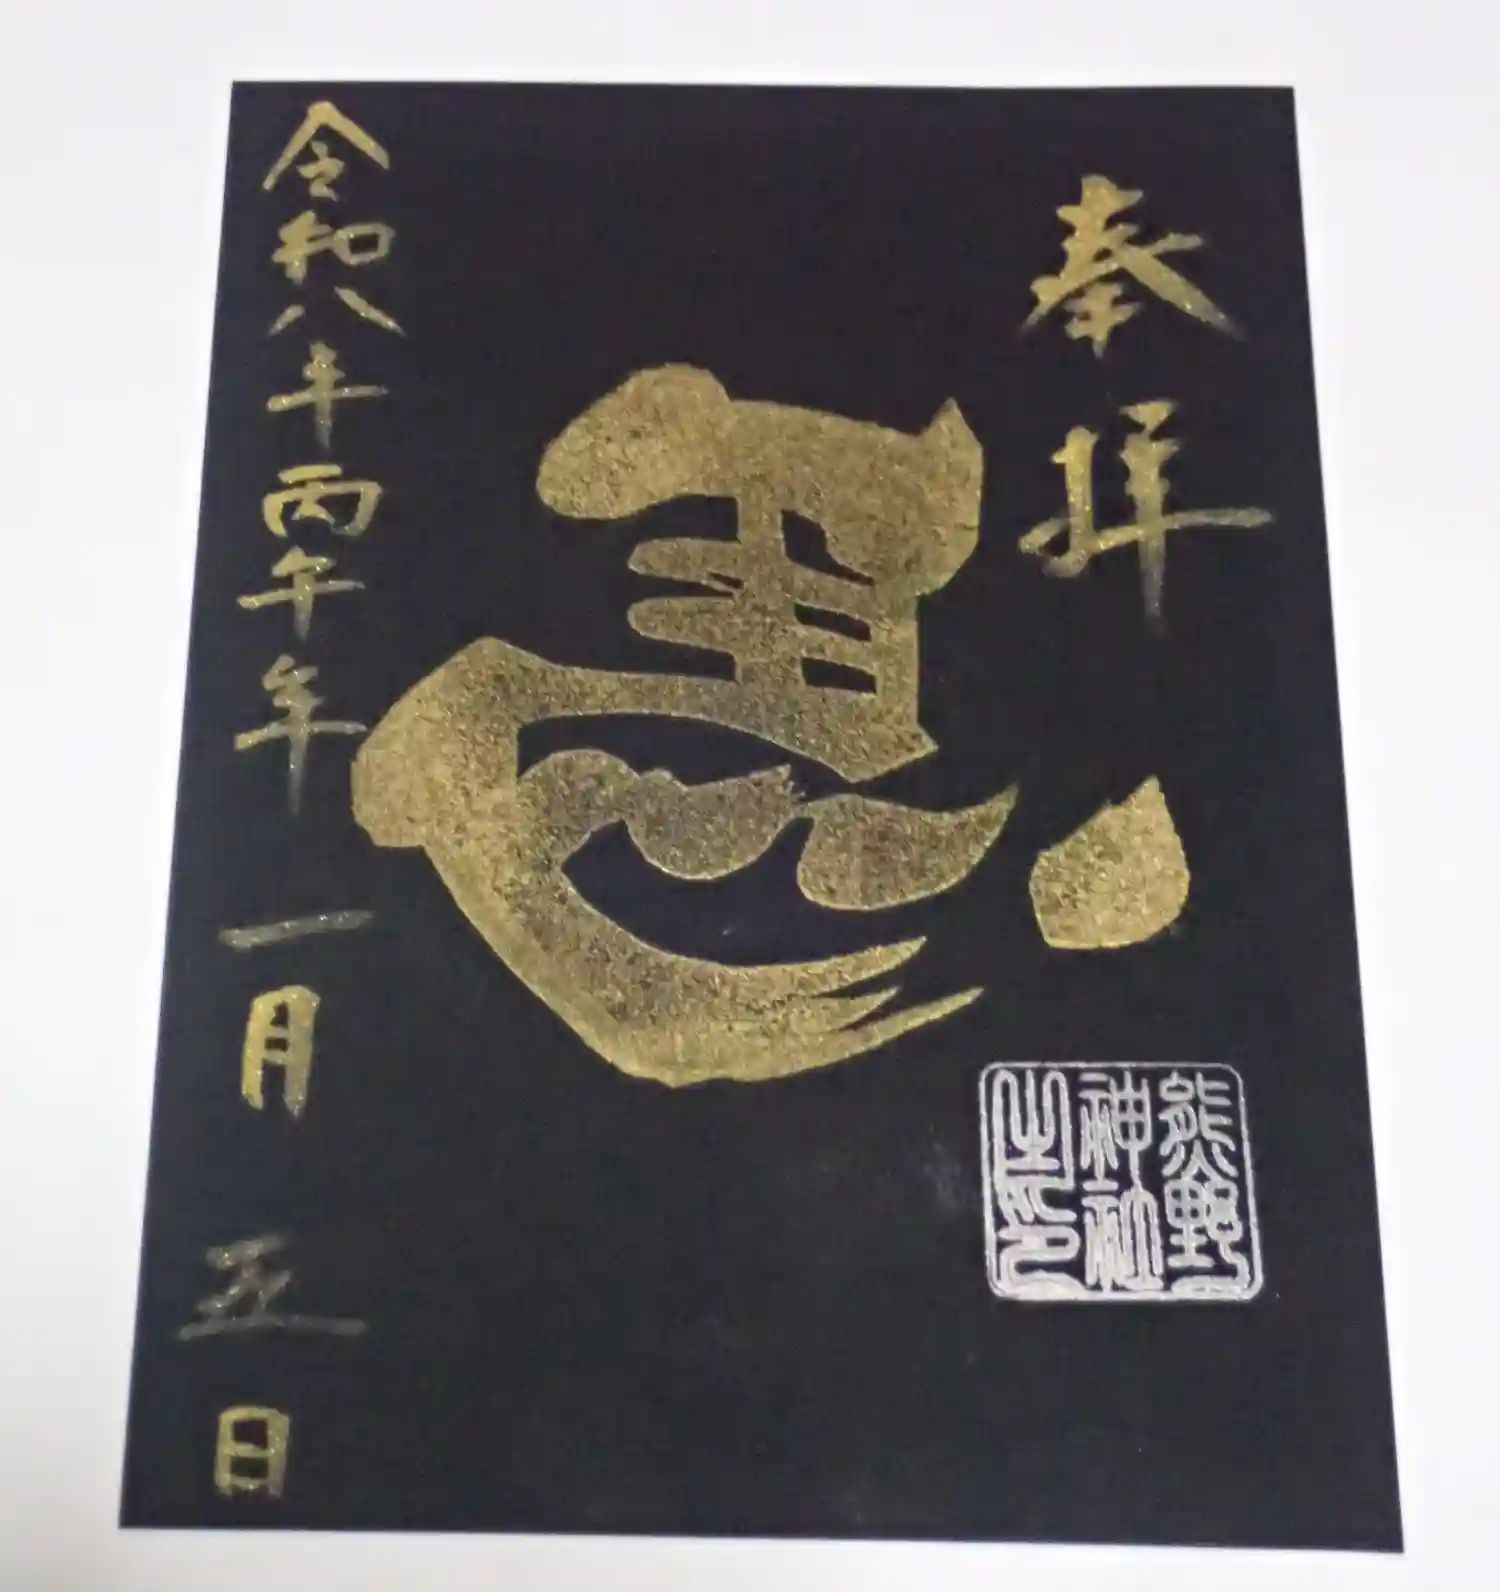 奉拝
馬
熊野
神社
之印
令和八年丙午年一月五日